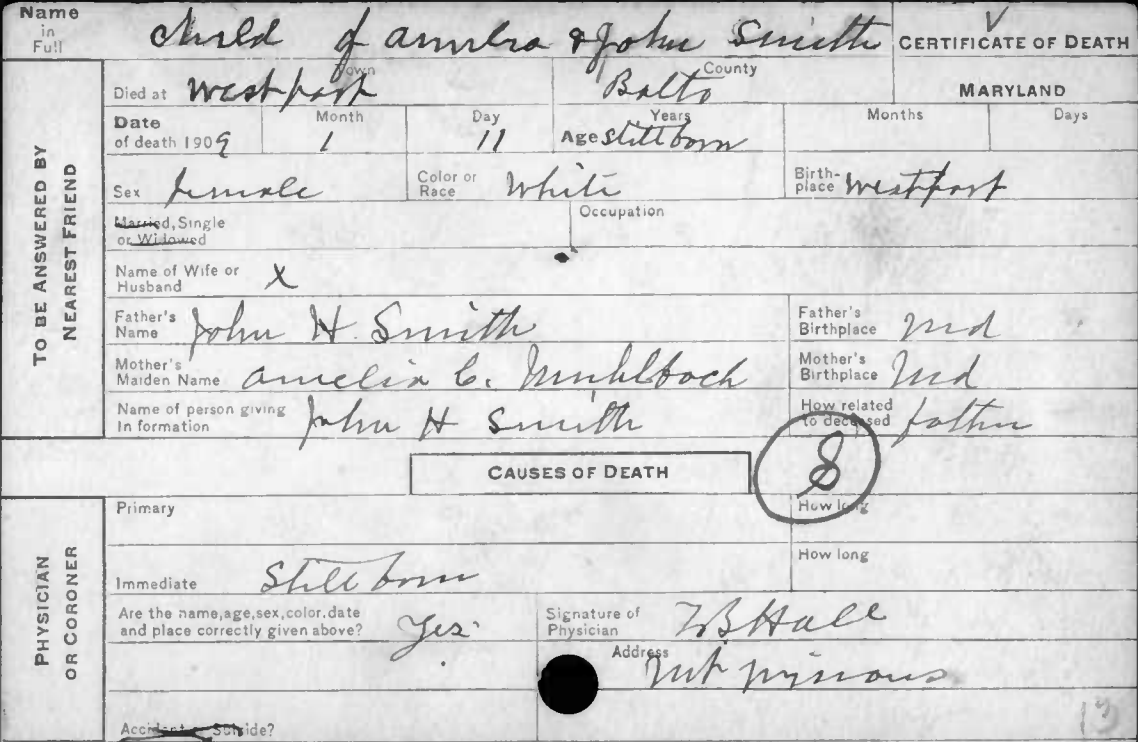 Name in Full Child of Amelia & John Smith CERTIFICATE OF DEATH
Died at Westport Town Balto County MARYLAND
Date of death 1909 Month 1 Day 11 Age Years Stillborn Months Days
Sex female Color or Race White Birthplace Westport
Married, Single or Widowed Occupation
Name of Wife or Husband X
Father's Name John H. Smith Father's Birthplace Md
Mother's Maiden Name Amelia C. Muhlbach Mother's Birthplace Md
Name of person giving In formation John H Smith How related to deceased father
TO BE ANSWERED BY NEAREST FRIEND
CAUSES OF DEATH
S
Primary How long
Immediate Still born How long
Are the name, age, sex, color, date and place correctly given above? Yes Signature of Physician Hall
Address Mt Winans
Accident or Suicide?
PHYSICIAN OR CORONER